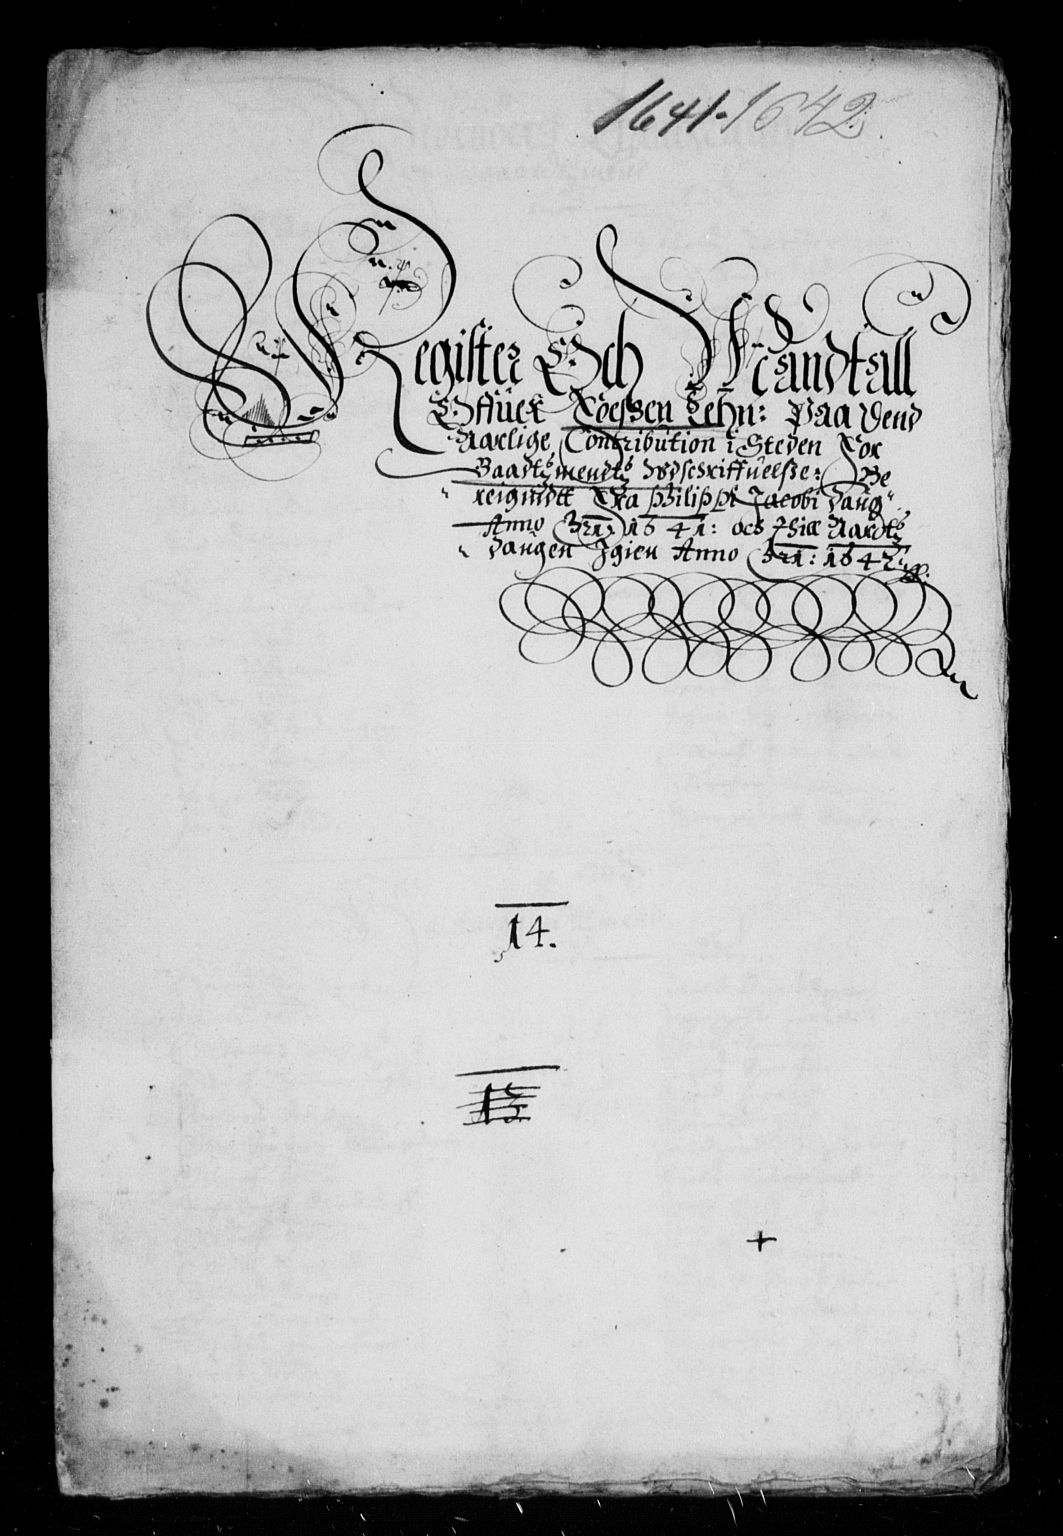 1641-1642
Register Och Mandtall
Offuer Foessen Lehn: Paa Dend
Aarlige Contribution i Steden For
Baadtzmendtz Vdschriffuelsse: Be
reignidtt Fra Philippi Jacobi daug
Anno 1641: och Till Aardtz
daugen Igien Anno 1642:
14.
+